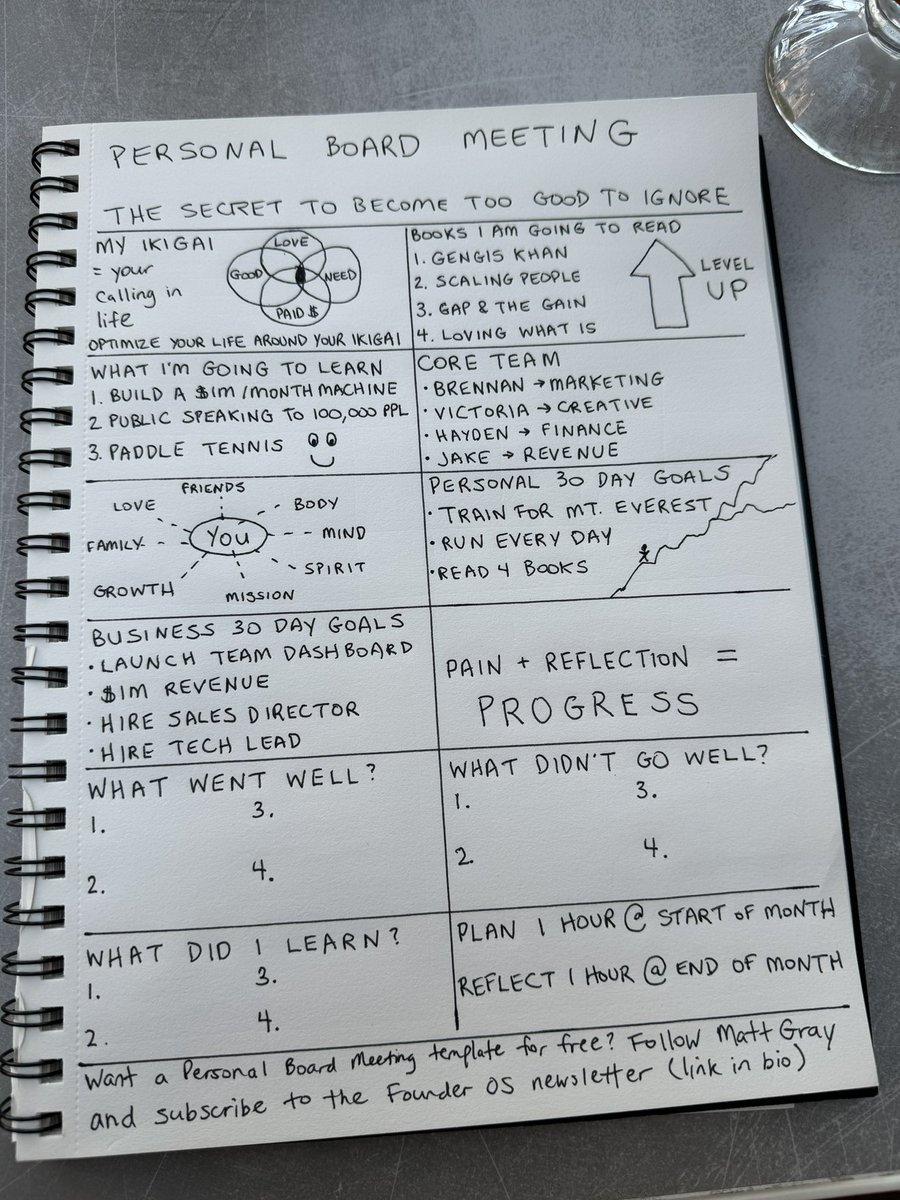 PERSONAL BOARD MEETING
THE SECRET TO BECOME TOO GOOD TO IGNORE
MY IKIGAI
= your
calling in
life
LOVE
GOOD
NEED
PAID $
OPTIMIZE YOUR LIFE AROUND YOUR IKIGAI
BOOKS I AM GOING TO READ
1. GENGIS KHAN
2. SCALING PEOPLE
3. GAP & THE GAIN
4. LOVING WHAT IS
LEVEL
UP
WHAT I'M GOING TO LEARN
1. BUILD A $1M/MONTH MACHINE
2 PUBLIC SPEAKING TO 100,000 PPL
3. PADDLE TENNIS
CORE TEAM
• BRENNAN → MARKETING
• VICTORIA → CREATIVE
• HAYDEN → FINANCE
• JAKE → REVENUE
FRIENDS
LOVE
BODY
FAMILY
You
MIND
GROWTH
SPIRIT
MISSION
PERSONAL 30 DAY GOALS
• TRAIN FOR MT. EVEREST
• RUN EVERY DAY
• READ 4 BOOKS
BUSINESS 30 DAY GOALS
• LAUNCH TEAM DASHBOARD
• $1M REVENUE
• HIRE SALES DIRECTOR
• HIRE TECH LEAD
PAIN + REFLECTION =
PROGRESS
WHAT WENT WELL?
1. 3.
2. 4.
WHAT DIDN'T GO WELL?
1. 3.
2. 4.
WHAT DID I LEARN?
1. 3.
2. 4.
PLAN 1 HOUR @ START OF MONTH
REFLECT 1 HOUR @ END OF MONTH
Want a Personal Board Meeting template for free? Follow Matt Gray
and subscribe to the Founder OS newsletter (link in bio)